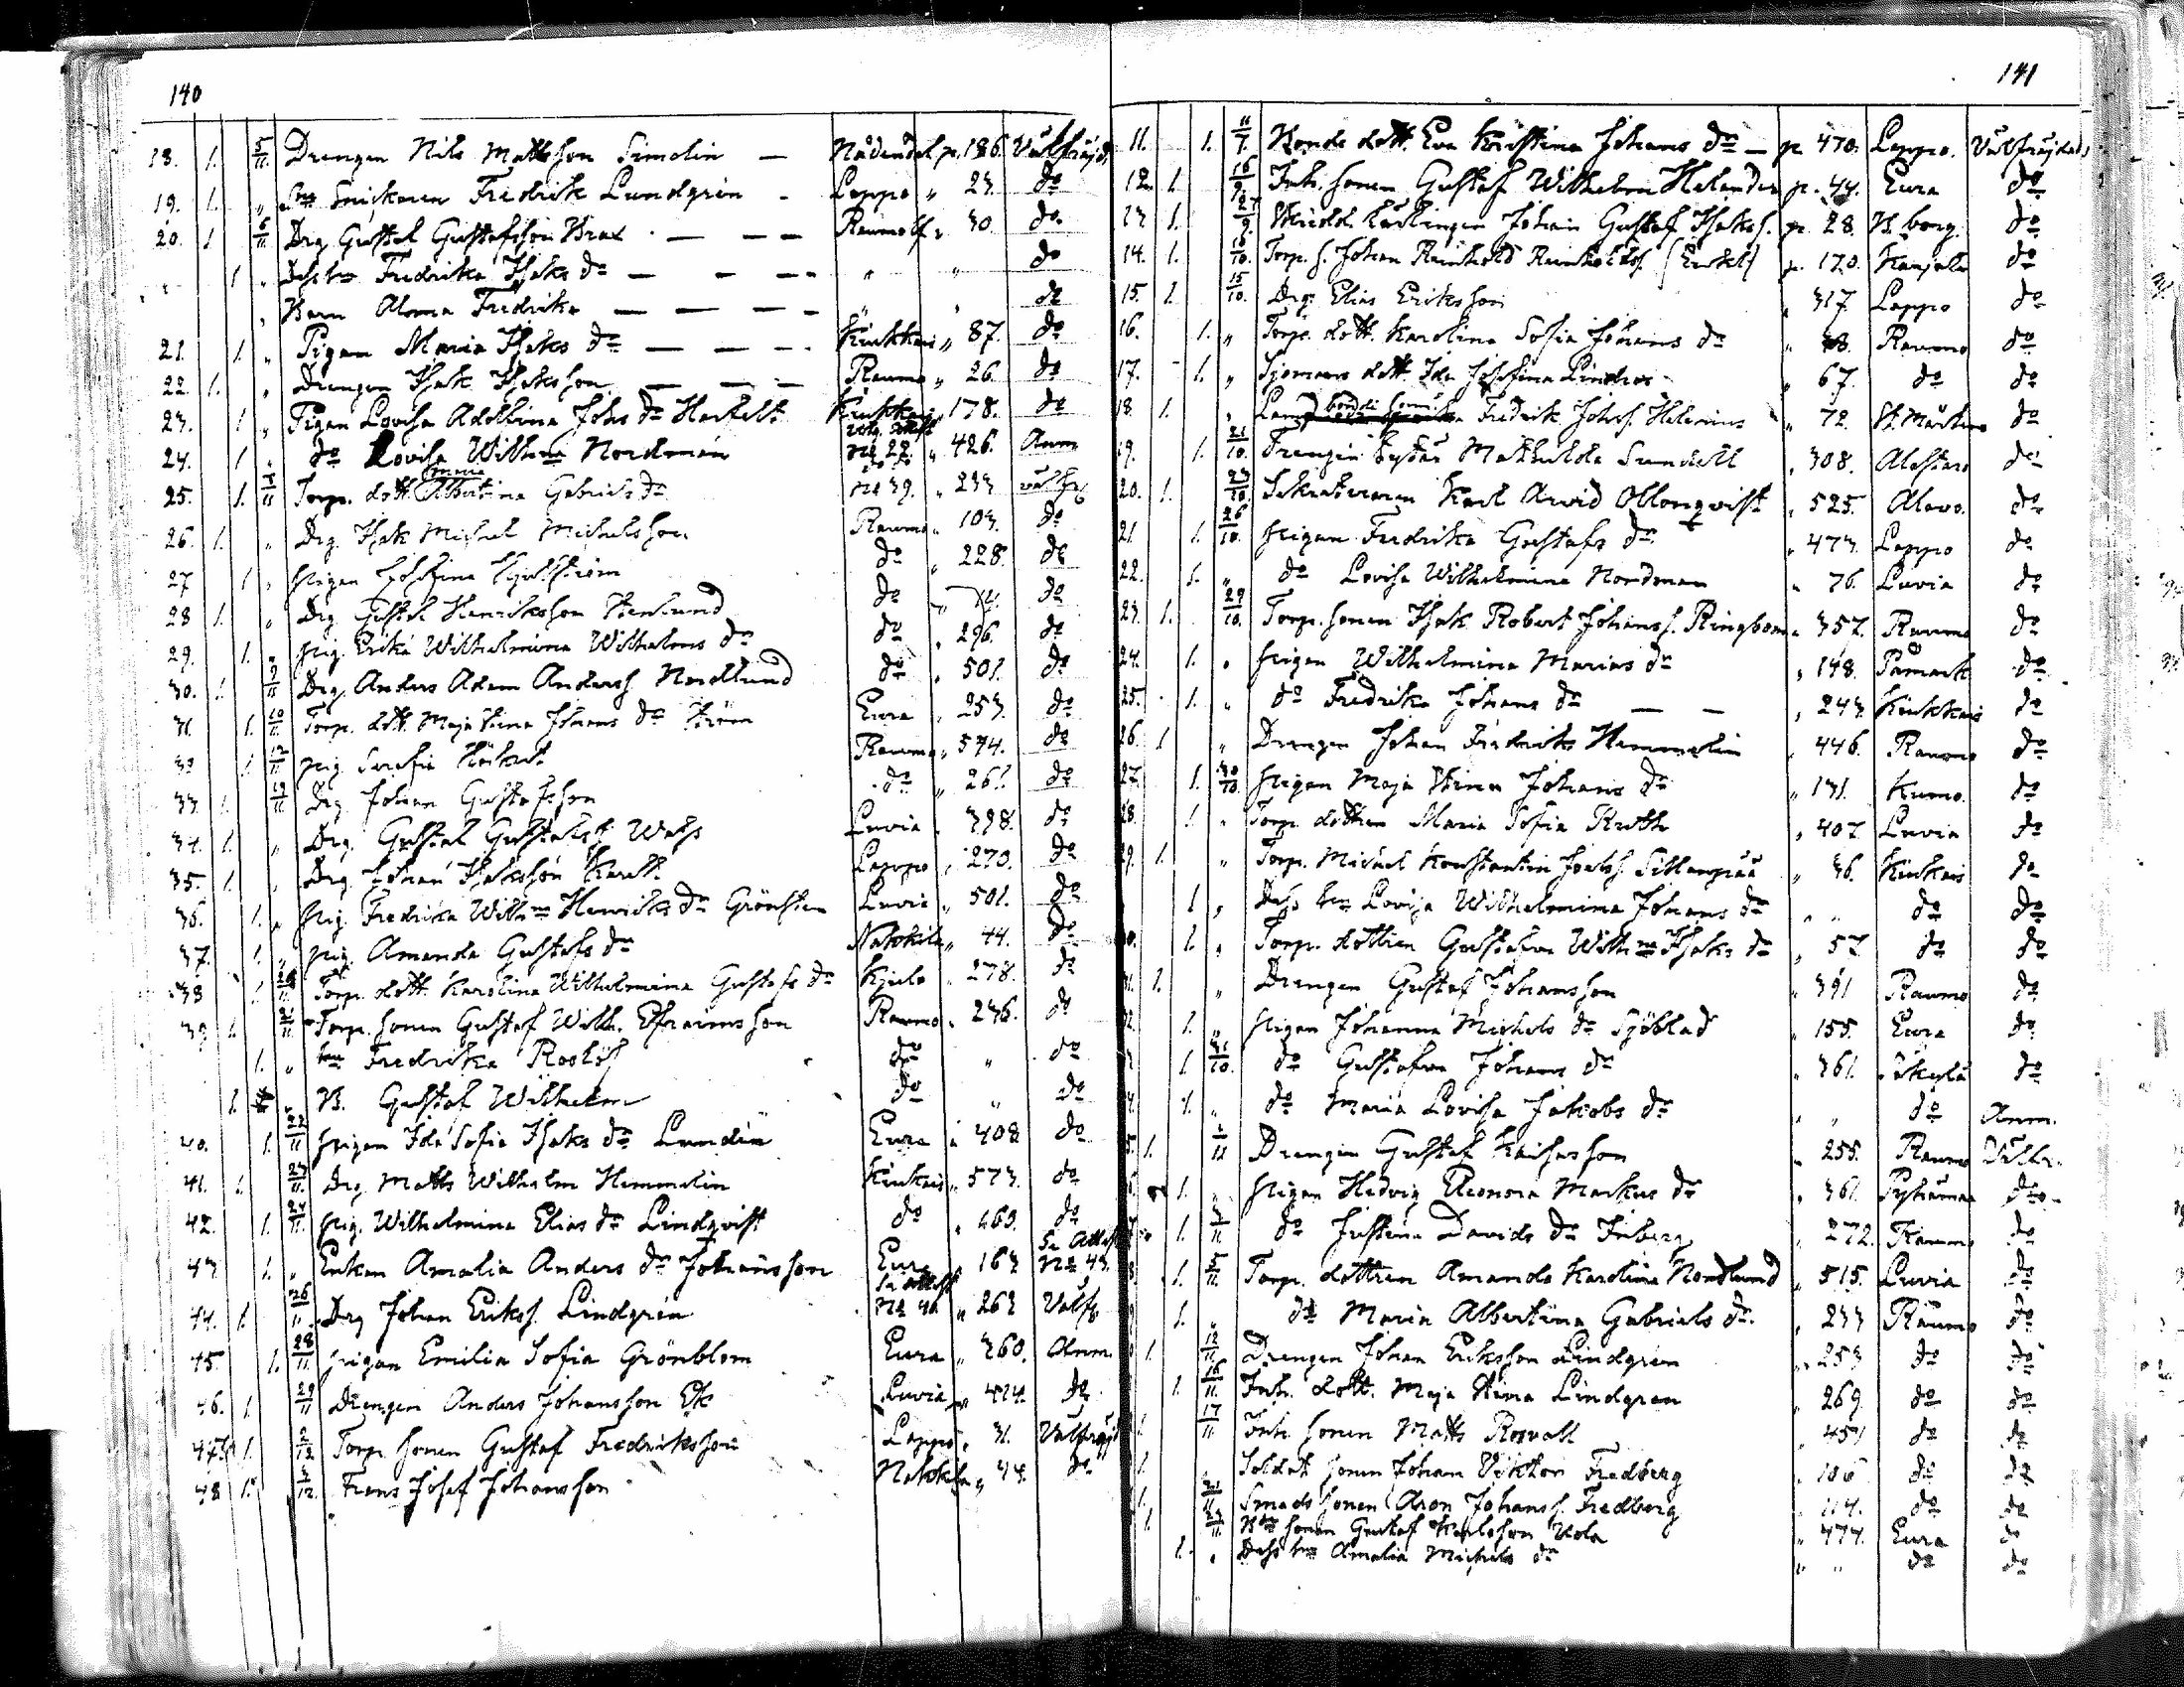 140
18. 1. 5/11 Drengen Nils Mattsson Simolin — Nådendal p. 186. Välfräjd.
19. 1. " Snickaren Fredrik Lundgrén - Lappo " 23. do
20. 1 6/11 Drg. Gustaf Gustafsson Brax — — — Raumo " 30. do
1 " Dess hu Fredrika Isaks dr — — — " " do
" Barn Alma Fredrika — — — " " do
21. 1. " Pigan Maria Isaks dr — — — Kiukkais " 87. do
22. 1. " Drengen Isak Isaksson — — — Raumo " 26. do
23. 1 " Pigan Lovisa Adolfina Johs dr Kiukkais " 178. do
24. 1 " do Lovisa Wilhna Nordman No 22. " 426. Anm
25. 1. 8/11 Torp. dott. Maria Albertina Gabriels dr No 39. " 233 välfr.
26. 1. " Drg. Isak Michel Michelsson Raumo " 103. do
27 1 " Pigan Josefina do " 228. do
28 1. " Drg. Gustaf Henriksson Stenlund do " do
29. 1. " Pig. Erika Wilhelmina Wilhelms dr do " 296. do
30. 1. 9/11 Drg. Anders Adam Anderss. Nordlund do " 501. do
31. 1. 10/11 Torp. dott. Maja Stina Johans dr Ström Eura " 253. do
32 1. 12/11 Pig. Serafia Raumo " 574. do
33. 1. 19/11 Drg. Johan Gustafsson do " 261. do
34. 1. " Drg. Gustaf Gustafss. Luvia " 398. do
35. 1. " Drg. Johan Isaksson Lappo " 270. do
36. 1. " Pig. Fredrika Wilhna Henriks dr Grönsten Luvia " 501. do
37. 1. " Pig. Amanda Gustafs dr Nakkila " 44. do
38 1. 20/11 Torp. dott. Karolina Wilhelmina Gustafs dr Kjulo " 278. do
39 1. 21/11 Torp. sonen Gustaf Wilh. Efraimsson Raumo " 236. do
1. " hu Fredrika Roslöf do " do
1. " B. Gustaf Wilhelm do " do
40. 1. 22/11 Pigan Ida Sofia Isaks dr Lundén Eura " 408 do
41. 1. 23/11 Drg. Matts Wilhelm Himmelin Kiukais " 573. do
42. 1. 24/11 Pig. Wilhelmina Elias dr Lindqvist do " 460. do
43 1. " Enkan Amalia Anders dr Johansson Eura " 163 No 43.
44. 1. 26/11 Drg Johan Erikss. Lindgrén No 46 " 262 Välfr.
45. 1. 28/11 Pigan Emilia Sofia Grönblom Eura " 360. Anm.
46. 1. 29/11 Drengen Anders Johansson Ek Luvia " 424. do
47. 1. 2/12 Torp. sonen Gustaf Fredriksson Lappo " 31. Välfräjd
48 1. 3/12. Frans Josef Johansson Nakkila " 44. do
141
11. 1. 11/7. Bonde dott. Eva Kristina Johans dr — p. 470. Lappo. Välfräjdad
12. 1. 16/9. Inh. sonen Gustaf Wilhelm Helander p. 44. Eura do
13 1. 27/9. Johan Gustaf Isakss. p. 28. B.borg. do
14. 1. 10/10. Torp. s. Johan Reinhold Reinholdss. (Enkl) p. 170. Karjala do
15. 1. 15/10. Drg. Elias Eriksson " 317. Lappo do
16. 1. " Torp. dott. Karolina Sofia Johans dr " Raumo do
17. 1. " Sjömans dott. Ida Josefina Lindros " 67. do do
18. 1. " Fredrik Johss. Helenius " 72. St. Mårtens do
19. 1. 21/10. Drengen Mathilda Sundell " 308. Alastaro do
20. 1. 23/10. Sekreteraren Karl Arvid Ollonqvist " 525. Alavo. do
21. 1. 26/10. Pigan Fredrika Gustafs dr " 473. Lappo do
22. 1. " do Lovisa Wilhelmina Nordman " 76. Luvia do
23. 1. 29/10. Torp. sonen Isak Robert Johanss. Ringbom " 357. Raumo do
24. 1. " Pigan Wilhelmina Marias dr " 148. Påmark do
25. 1. " do Fredrika Johans dr — — " 243 Kiukkais do
26. 1 " Drengen Johan Fredriks Hemmelin " 446. Raumo do
27. 1. 30/10. Pigan Maja Stina Johans dr " 131. Kumo. do
28. 1. " Torp. dottren Maria Sofia Ruth " 407. Luvia do
29. 1. " Torp. Michel Konstantin Joelss. Sillanpää " 36. Kiukais do
1 " Dess hu Lovisa Wilhelmina Johans dr " " do do
30. 1. " Torp. dottren Gustafva Wilhna Isaks dr " 57 do do
31. 1. " Drengen Gustaf Johansson " 391 Raumo do
32. 1. " Pigan Johanna Michels dr Sjöblad " 155. Eura do
1 31/10. do Gustafva Johans dr " 361. Säkylä do
1. " do Maria Lovisa Jakobs dr " " do Anm.
5. 1. 1/11 Drengen Gustaf " 255. Raumo Välfr.
6. 1. " Pigan Hedvig Eleonora Markus dr " 361. Pyhämaa do
1. 3/11 do Justina Davids dr Inberg " 272. Raumo do
1. 5/11. Torp. dottren Amanda Karolina Nordlund " 515. Luvia do
1. " do Maria Albertina Gabriels dr. " 233 Raumo do
1. 12/11. Drengen Johan Eriksson Lindgrén " 253 do do
1. 16/11. Inh. dott. Maja Stina Lindgren " 269 do do
1. 17/11. Inh. sonen Matts Rosvall " 451 do do
1. Soldat sonen Johan Viktor Fredberg " 106 do do
1. 21/11 Smeds sonen Aron Johanss. Fredberg " 114. do do
1. 23/11. sonen Gustaf Karlsson Kola " 474. Eura do
1. " Dess hu Amalia Michels dr " " do do